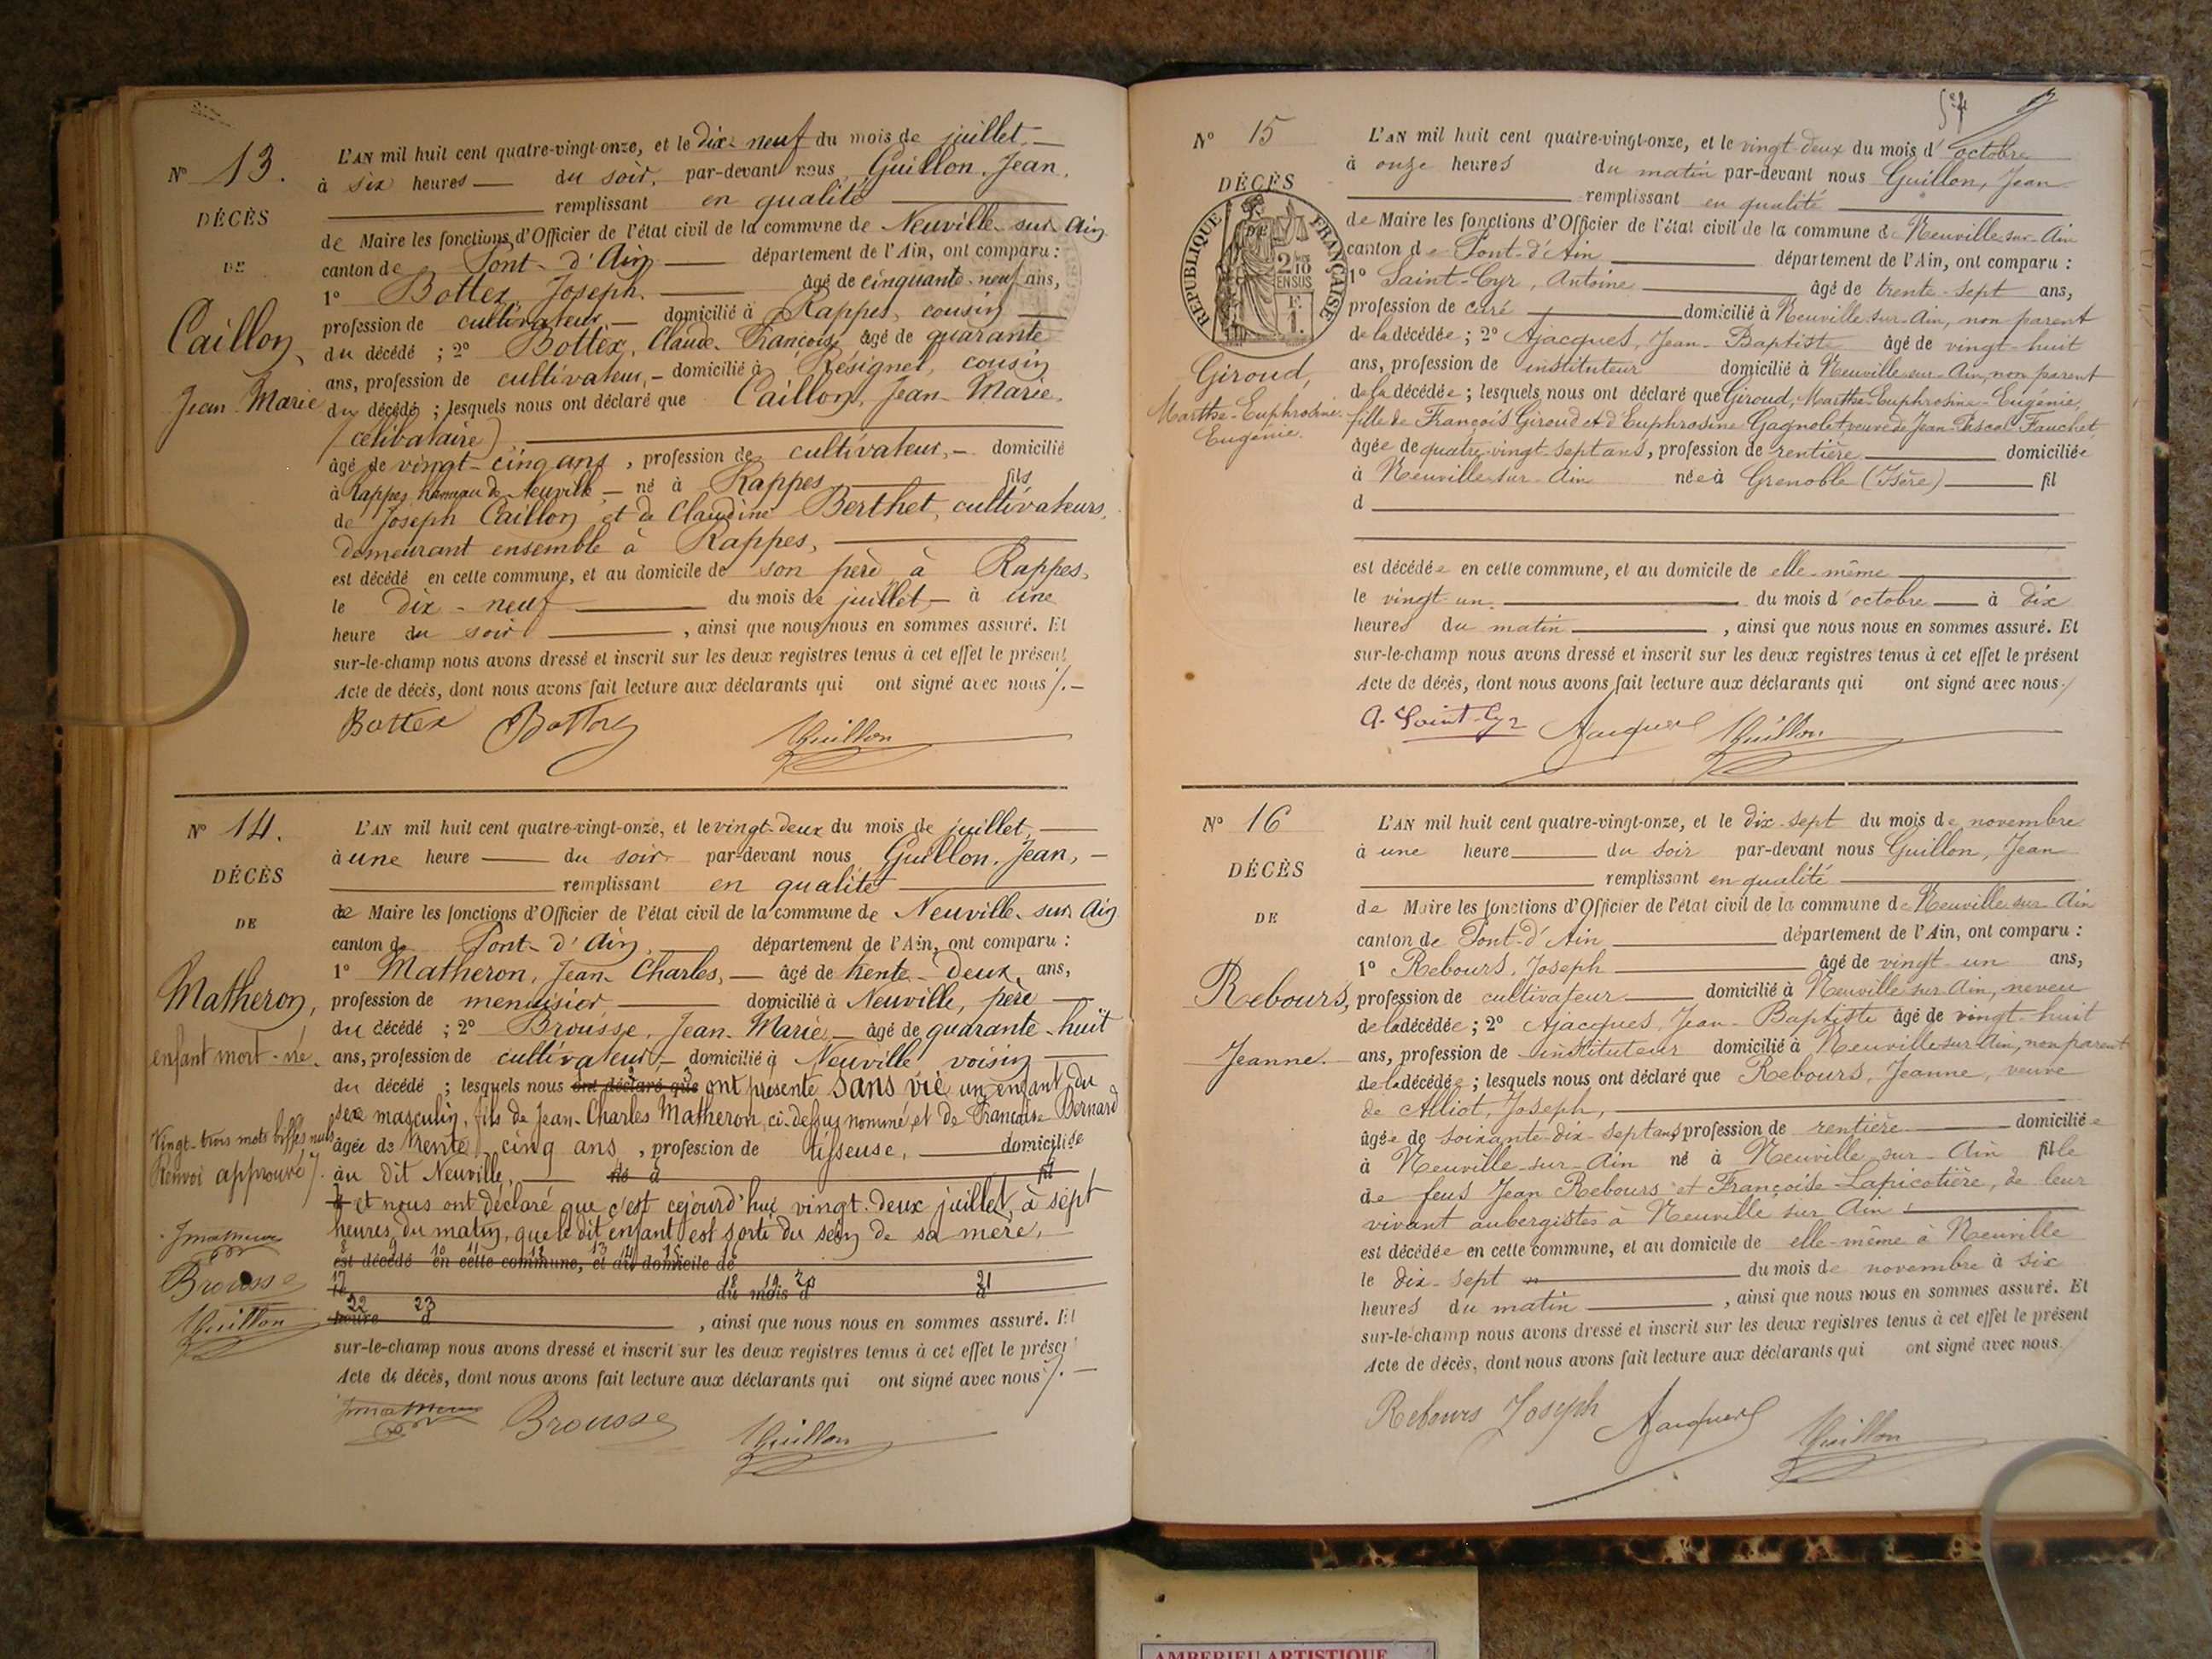 N° 13.
DÉCÈS
DE
Caillon,
Jean Marie
L'AN mil huit cent quatre-vingt-onze, et le dix-neuf du mois de juillet
à six heures du soir, par-devant nous Guillon, Jean,
remplissant en qualité
de Maire les fonctions d'Officier de l'état civil de la commune de Neuville-sur-Ain
canton de Pont-d'Ain département de l'Ain, ont comparu :
1° Bottex, Joseph. âgé de cinquante-neuf ans,
profession de cultivateur, domicilié à Rappes, cousin
du décédé ; 2° Bottex, Claude-François, âgé de quarante
ans, profession de cultivateur, domicilié à Résignel, cousin
du décédé ; lesquels nous ont déclaré que Caillon, Jean-Marie,
(célibataire)
âgé de vingt-cinq ans, profession de cultivateur, domicilié
à Rappes, hameau de Neuville né à Rappes fils
de Joseph Caillon et de Claudine Berthet, cultivateurs,
demeurant ensemble à Rappes,
est décédé en cette commune, et au domicile de son père à Rappes,
le dix-neuf du mois de juillet à une
heure du soir, ainsi que nous nous en sommes assuré. Et
sur-le-champ nous avons dressé et inscrit sur les deux registres tenus à cet effet le présent
Acte de décès, dont nous avons fait lecture aux déclarants qui ont signé avec nous /.
Bottex Bottex Guillon
N° 14.
DÉCÈS
DE
Matheron,
enfant mort-né.
Vingt-trois mots biffés nuls
Renvoi approuvé /.
Brousse
Guillon
L'AN mil huit cent quatre-vingt-onze, et le vingt-deux du mois de juillet,
à une heure du soir par-devant nous Guillon, Jean,
remplissant en qualité
de Maire les fonctions d'Officier de l'état civil de la commune de Neuville-sur-Ain
canton de Pont-d'Ain, département de l'Ain, ont comparu :
1° Matheron, Jean-Charles, âgé de trente-deux ans,
profession de menuisier, domicilié à Neuville, père
du décédé ; 2° Brousse, Jean-Marie, âgé de quarante-huit
ans, profession de cultivateur, domicilié à Neuville voisin
du décédé ; lesquels nous ont déclaré que ont présenté sans vie un enfant du
sexe masculin, fils de Jean-Charles Matheron, ci-dessus nommé, et de Françoise Bernard
âgée de trente-cinq ans, profession de tisseuse, domiciliée
au dit Neuville, né à fil
d et nous ont déclaré que c'est cejourd'hui vingt-deux juillet, à sept
heures du matin, que le dit enfant est sorti du sein de sa mère,
8 9 10 11 12 13 14 15
est décédé en cette commune, et au domicile de
17 18 19 20 21
le du mois d à
22 23
heure d , ainsi que nous nous en sommes assuré. Et
sur-le-champ nous avons dressé et inscrit sur les deux registres tenus à cet effet le présent
Acte de décès, dont nous avons fait lecture aux déclarants qui ont signé avec nous /.
Brousse Guillon
N° 15
DÉCÈS
DE
RÉPUBLIQUE FRANÇAISE
2/10 EN SUS
Giroud,
Marthe-Euphrosine-
Eugénie.
L'AN mil huit cent quatre-vingt-onze, et le vingt-deux du mois d'octobre
à onze heures du matin par-devant nous Guillon, Jean
remplissant en qualité
de Maire les fonctions d'Officier de l'état civil de la commune de Neuville-sur-Ain
canton de Pont-d'Ain département de l'Ain, ont comparu :
1° Saint-Cyr, Antoine âgé de trente-sept ans,
profession de curé domicilié à Neuville-sur-Ain, non parent
de la décédée ; 2° Ajacques, Jean-Baptiste âgé de vingt-huit
ans, profession de instituteur domicilié à Neuville-sur-Ain, non parent
de la décédée ; lesquels nous ont déclaré que Giroud, Marthe-Euphrosine-Eugénie,
fille de François Giroud et d'Euphrosine Gagnolet, veuve de Jean Pascal Fauchet
âgée de quatre-vingt-sept ans, profession de rentière domiciliée
à Neuville-sur-Ain née à Grenoble (Isère) fil
d
est décédée en cette commune, et au domicile de elle-même
le vingt-un du mois d'octobre à dix
heures du matin, ainsi que nous nous en sommes assuré. Et
sur-le-champ nous avons dressé et inscrit sur les deux registres tenus à cet effet le présent
Acte de décès, dont nous avons fait lecture aux déclarants qui ont signé avec nous./
A. Saint-Cyr Ajacques Guillon
N° 16
DÉCÈS
DE
Rebours,
Jeanne.
L'AN mil huit cent quatre-vingt-onze, et le dix-sept du mois de novembre
à une heure du soir par-devant nous Guillon, Jean
remplissant en qualité
de Maire les fonctions d'Officier de l'état civil de la commune de Neuville-sur-Ain
canton de Pont-d'Ain département de l'Ain, ont comparu :
1° Rebours, Joseph âgé de vingt-un ans,
profession de cultivateur domicilié à Neuville-sur-Ain, neveu
de la décédée ; 2° Ajacques, Jean-Baptiste âgé de vingt-huit
ans, profession de instituteur domicilié à Neuville-sur-Ain, non parent
de la décédée ; lesquels nous ont déclaré que Rebours, Jeanne, veuve
de Alliot, Joseph,
âgée de soixante-dix-sept ans, profession de rentière domiciliée
à Neuville-sur-Ain né à Neuville-sur-Ain fille
de feus Jean Rebours et Françoise Lapicotière, de leur
vivant aubergistes à Neuville-sur-Ain,
est décédée en cette commune, et au domicile de elle-même à Neuville
le dix-sept du mois de novembre à six
heures du matin, ainsi que nous nous en sommes assuré. Et
sur-le-champ nous avons dressé et inscrit sur les deux registres tenus à cet effet le présent
Acte de décès, dont nous avons fait lecture aux déclarants qui ont signé avec nous./
Rebours Joseph Ajacques Guillon
AMBERIEU ARTISTIQUE